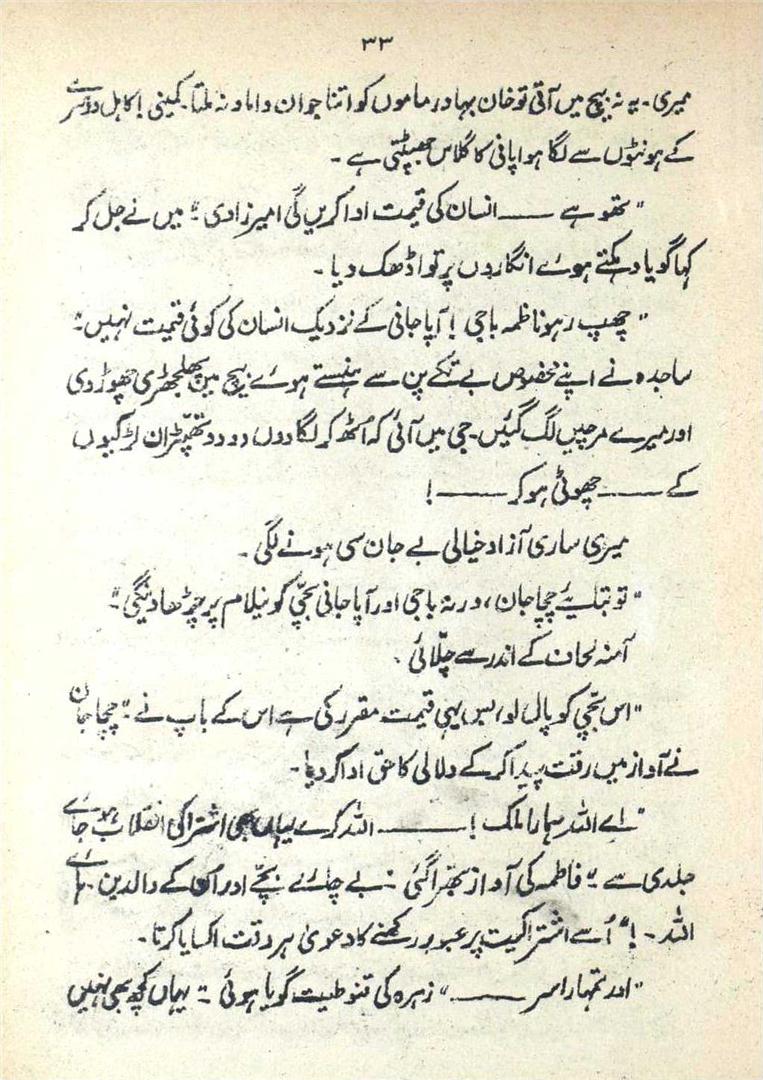 ۳۳
میری۔ یہ نہ بیچ میں آتی تو خان بہادر ماموں کو اتنا جوان داماد نہ ملتا۔ کمینی! کاہل دوسرے
کے ہونٹوں سے لگا ہوا پانی کا گلاس جھپٹتی ہے۔
"تھو ہے ——— انسان کی قیمت ادا کریں گی امیرزادی" میں نے جل کر
کہا گویا دہکتے ہوئے انگاروں پر توا ڈھک دیا۔
"چھپ رہو ناظمہ باجی! آپا جانی کے نزدیک انسان کی کوئی قیمت نہیں"
ساجدہ نے اپنے مخصوص بے تکے پن سے ہنستے ہوئے بیچ میں پھلجھڑی چھوڑ دی
اور میرے مرچیں لگ گئیں۔ جی میں آئی کہ اُٹھ کر لگا دوں دو دو تھپّڑ ان لڑکیوں
کے ——— چھوٹی ہو کر ———!
میری ساری آزاد خیالی بے جان سی ہونے لگی۔
"تو بتایئے چچا جان، ورنہ باجی اور آپا جانی بچّی کو نیلام پر چڑھا دینگی"۔
آمنہ لحاف کے اندر سے چلّائی۔
"اس بچّی کو پال لو، بس یہی قیمت مقرر کی ہے اس کے باپ نے" چچا جان
نے آواز میں رقت پیدا کر کے دلالی کا حق ادا کر دیا۔
"اے اللہ ہمارا ملک! ——— اللہ کرے یہاں بھی اشتراکی انقلاب ہو جائے
جلدی سے" فاطمہ کی آواز بھرّا گئی "بے چارے بچّے اور ان کے والدین۔ ہائے
اللہ۔!" اُسے اشتراکیت پر عبور رکھنے کا دعویٰ ہر وقت اکسایا کرتا۔
"اور تمہارا سر ———" زہرہ کی قنوطیت گویا ہوئی "یہاں کچھ بھی نہیں